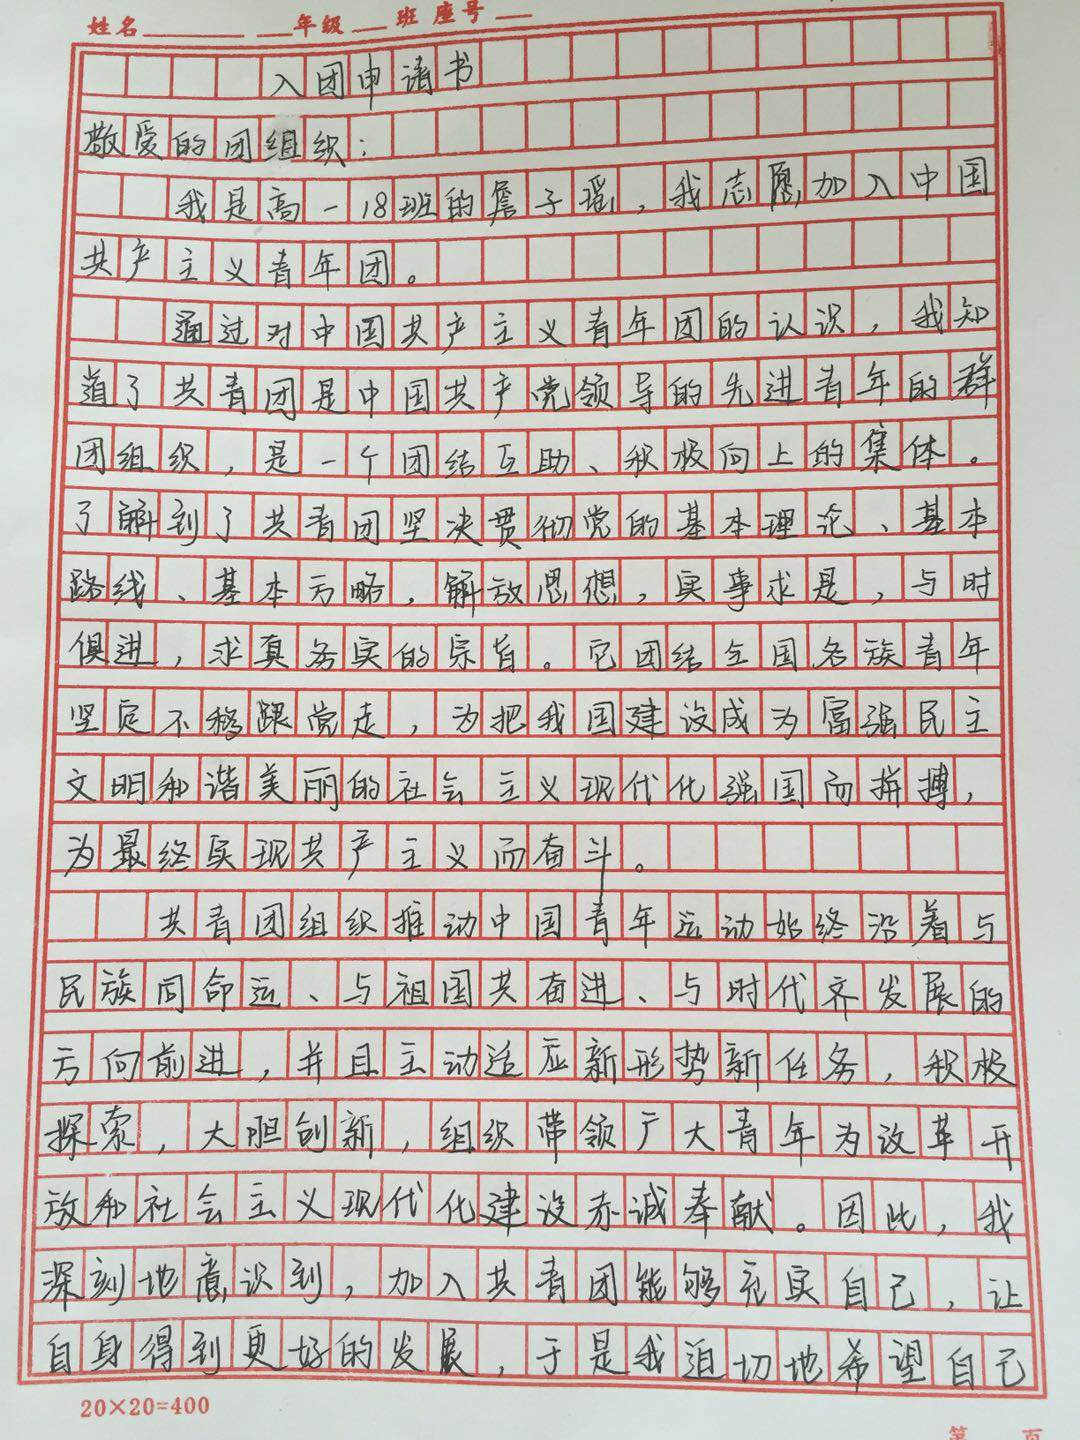 姓名______ __年级__班 座号__
入团申请书
敬爱的团组织：
我是高一18班的詹子瑶，我志愿加入中国
共产主义青年团。
通过对中国共产主义青年团的认识，我知
道了共青团是中国共产党领导的先进青年的群
团组织，是一个团结互助、积极向上的集体。
了解到了共青团坚决贯彻党的基本理论、基本
路线、基本方略，解放思想，实事求是，与时
俱进，求真务实的宗旨。它团结全国各族青年
坚定不移跟党走，为把我国建设成为富强民主
文明和谐美丽的社会主义现代化强国而拼搏，
为最终实现共产主义而奋斗。
共青团组织推动中国青年运动始终沿着与
民族同命运、与祖国共奋进、与时代齐发展的
方向前进，并且主动适应新形势新任务，积极
探索，大胆创新，组织带领广大青年为改革开
放和社会主义现代化建设赤诚奉献。因此，我
深刻地意识到，加入共青团能够充实自己，让
自身得到更好的发展，于是我迫切地希望自己
20×20=400
第 页